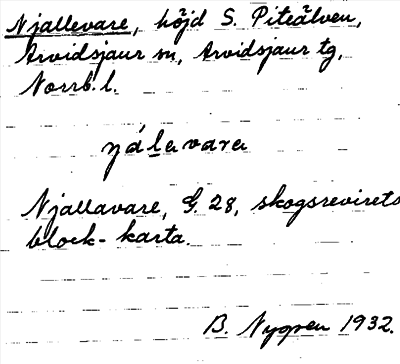 Njallevare, höjd S. Piteälven,
Arvidsjaur sn, Arvidsjaur tg,
Norrb. l.
ŋálavarɐ
Njallavare, G. 28, skogsrevirets
block-karta.
B. Nygren 1932.